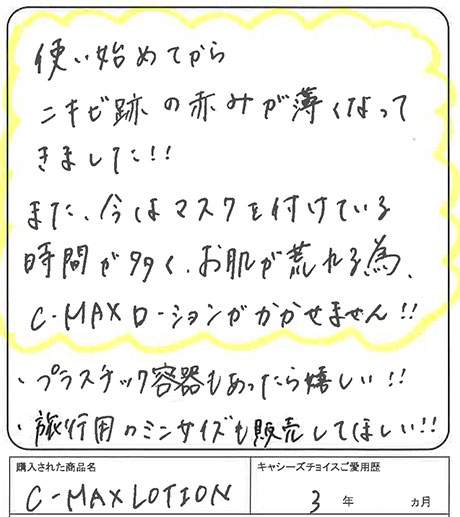 使い始めてから
ニキビ跡の赤みが薄くなって
きました!!
また、今はマスクを付けている
時間が多く、お肌が荒れる為、
C-MAXローションがかかせません!!
・プラスチック容器もあったら嬉しい!!
・旅行用のミニサイズも販売してほしい!!
購入された商品名 キャシーズチョイスご愛用歴
C-MAX LOTION 3 年 ヵ月